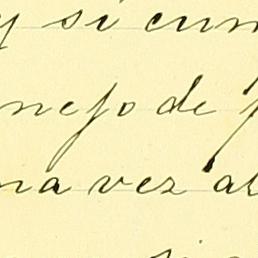 y si cum
nejo de p
na vez al
si